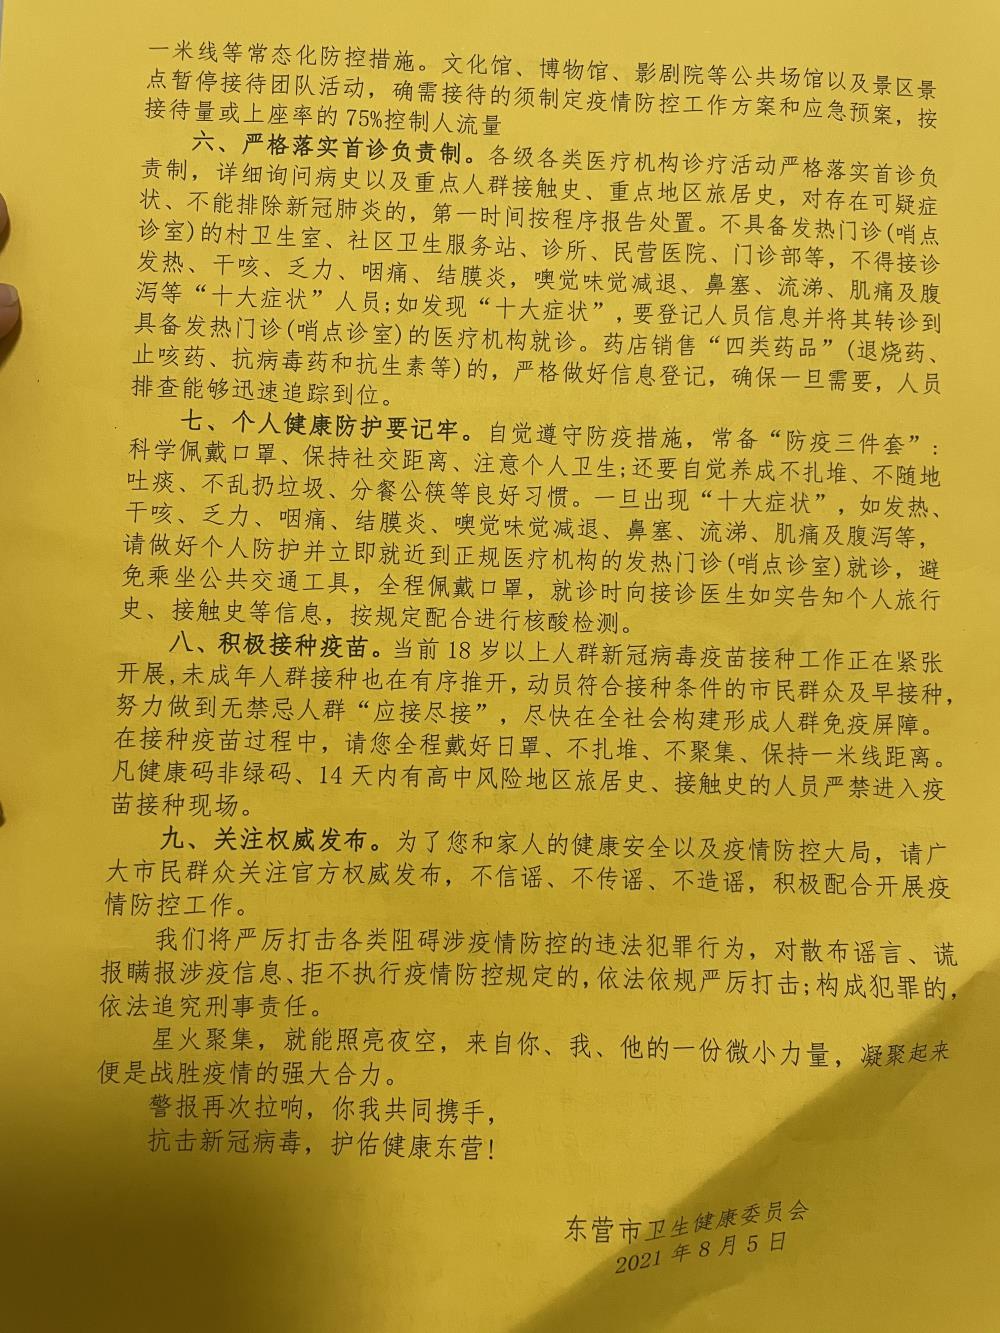 一米线等常态化防控措施。文化馆、博物馆、影剧院等公共场馆以及景区景
点暂停接待团队活动，确需接待的须制定疫情防控工作方案和应急预案，按
接待量或上座率的 75%控制人流量
六、严格落实首诊负责制。各级各类医疗机构诊疗活动严格落实首诊负
责制，详细询问病史以及重点人群接触史、重点地区旅居史，对存在可疑症
状、不能排除新冠肺炎的，第一时间按程序报告处置。不具备发热门诊(哨点
诊室)的村卫生室、社区卫生服务站、诊所、民营医院、门诊部等，不得接诊
发热、干咳、乏力、咽痛、结膜炎，嗅觉味觉减退、鼻塞、流涕、肌痛及腹
泻等“十大症状”人员;如发现“十大症状”，要登记人员信息并将其转诊到
具备发热门诊(哨点诊室)的医疗机构就诊。药店销售“四类药品”(退烧药、
止咳药、抗病毒药和抗生素等)的，严格做好信息登记，确保一旦需要，人员
排查能够迅速追踪到位。
七、个人健康防护要记牢。自觉遵守防疫措施，常备“防疫三件套”：
科学佩戴口罩、保持社交距离、注意个人卫生;还要自觉养成不扎堆、不随地
吐痰、不乱扔垃圾、分餐公筷等良好习惯。一旦出现“十大症状”，如发热、
干咳、乏力、咽痛、结膜炎、嗅觉味觉减退、鼻塞、流涕、肌痛及腹泻等，
请做好个人防护并立即就近到正规医疗机构的发热门诊(哨点诊室)就诊，避
免乘坐公共交通工具，全程佩戴口罩，就诊时向接诊医生如实告知个人旅行
史、接触史等信息，按规定配合进行核酸检测。
八、积极接种疫苗。当前 18 岁以上人群新冠病毒疫苗接种工作正在紧张
开展,未成年人群接种也在有序推开，动员符合接种条件的市民群众及早接种，
努力做到无禁忌人群“应接尽接”，尽快在全社会构建形成人群免疫屏障。
在接种疫苗过程中，请您全程戴好日罩、不扎堆、不聚集、保持一米线距离。
凡健康码非绿码、14 天内有高中风险地区旅居史、接触史的人员严禁进入疫
苗接种现场。
九、关注权威发布。为了您和家人的健康安全以及疫情防控大局，请广
大市民群众关注官方权威发布，不信谣、不传谣、不造谣，积极配合开展疫
情防控工作。
我们将严厉打击各类阻碍涉疫情防控的违法犯罪行为，对散布谣言、谎
报瞒报涉疫信息、拒不执行疫情防控规定的，依法依规严厉打击;构成犯罪的，
依法追究刑事责任。
星火聚集，就能照亮夜空，来自你、我、他的一份微小力量，凝聚起来
便是战胜疫情的强大合力。
警报再次拉响，你我共同携手，
抗击新冠病毒，护佑健康东营！
东营市卫生健康委员会
2021 年 8 月 5 日